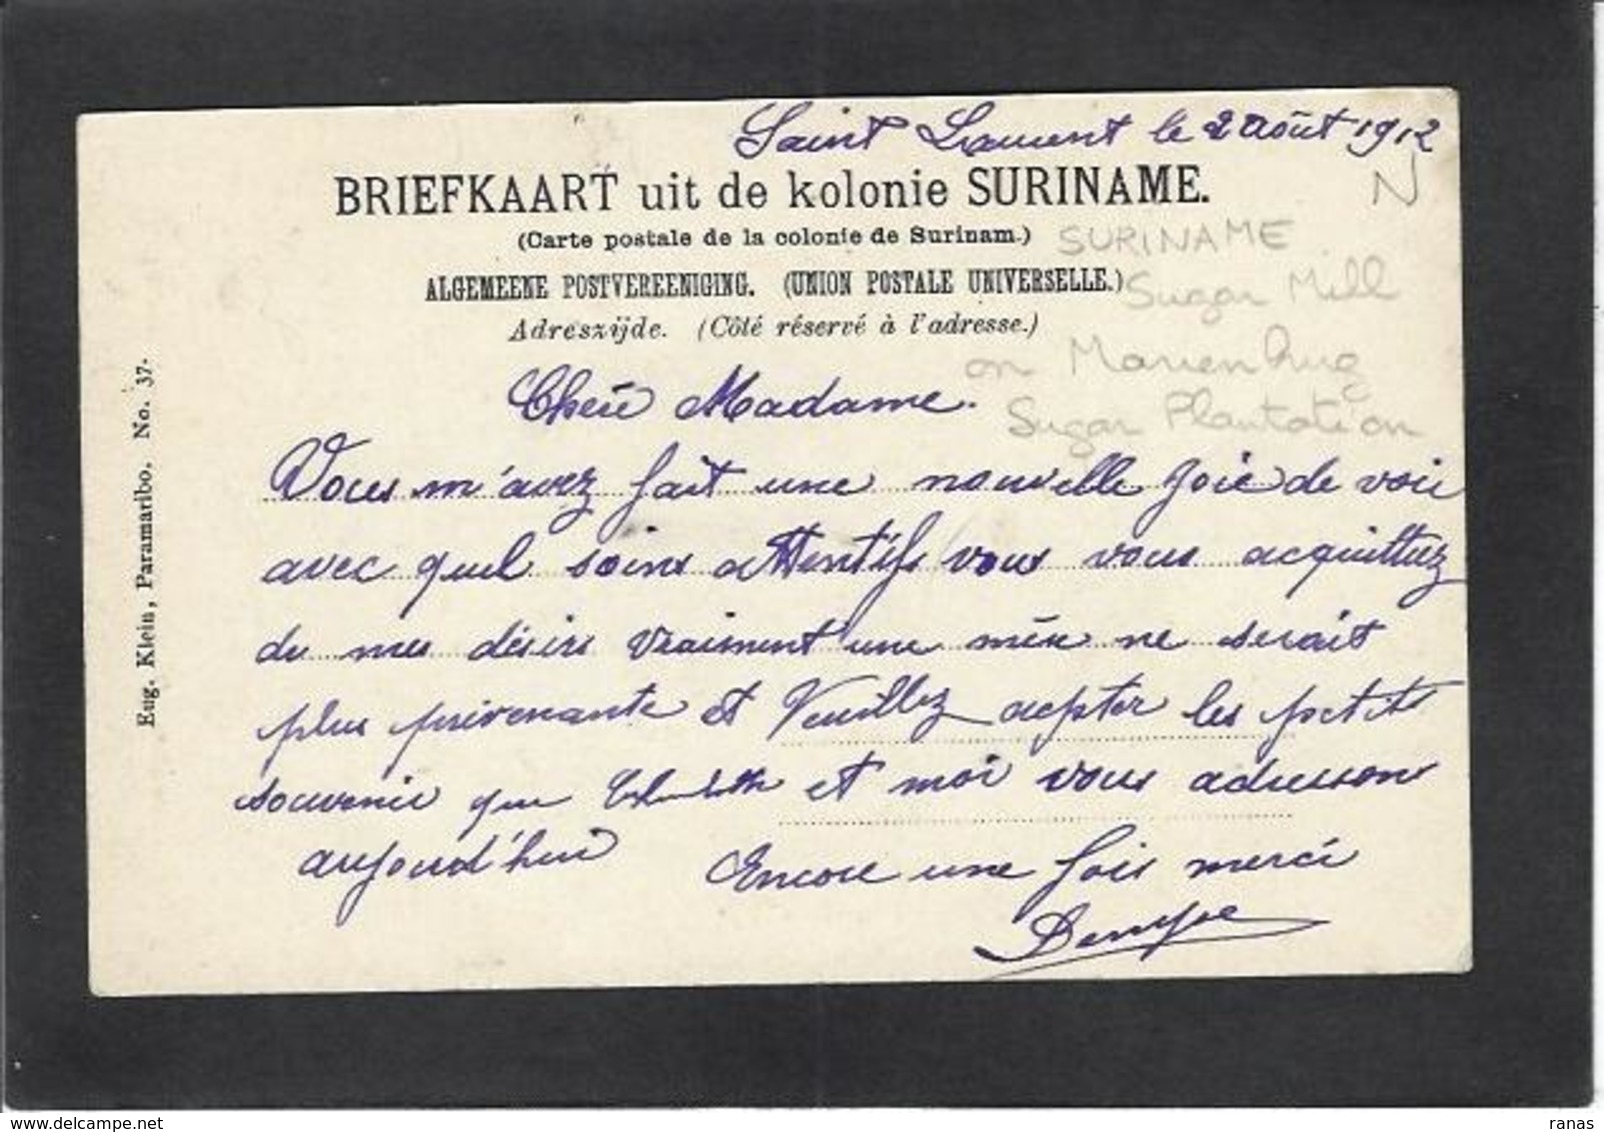 Saint Laurent le 2 Août 1912
N
BRIEFKAART uit de kolonie SURINAME.
(Carte postale de la colonie de Surinam.)
SURINAME
ALGEMEENE POSTVEREENIGING. (UNION POSTALE UNIVERSELLE.)
Sugar Mill
Adreszijde. (Côté réservé à l'adresse.)
on Marienburg
Sugar Plantation
Chère Madame.
Vous m'avez fait une nouvelle joie de voir
avec quel soins attentifs vous vous acquittez
de mes désirs vraiment une mère ne serait
plus prévenante et Veuillez acepter les petits
souvenir que et moi vous adressons
aujourd'hui Encore une fois merci
Eug. Klein, Paramaribo. No. 37.
ranas